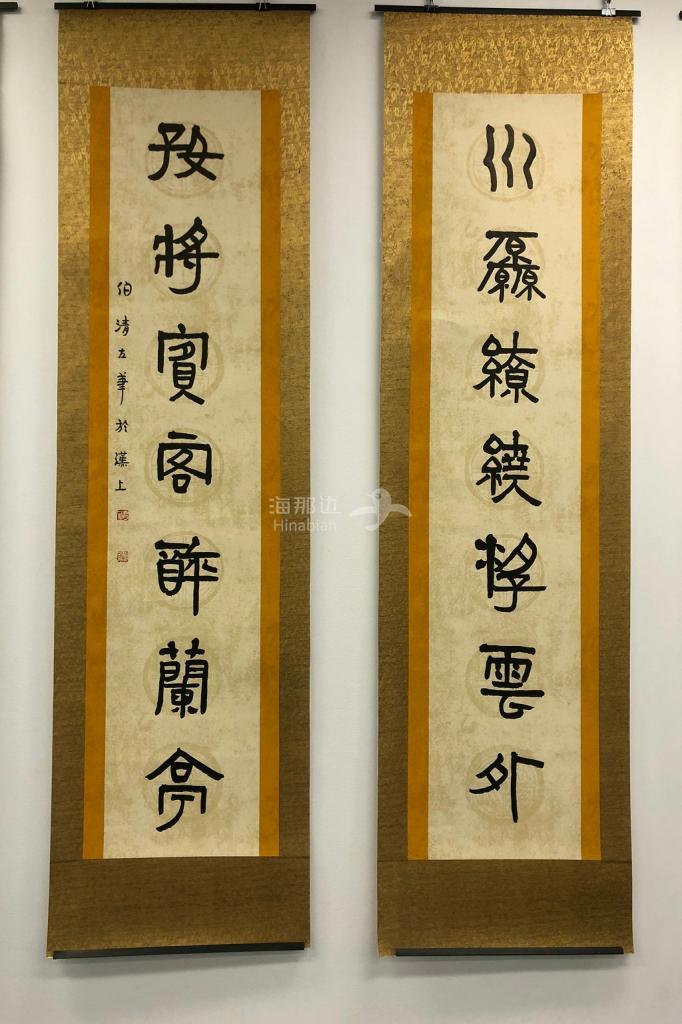 川厵繚繞浮雲外
好將賓客醉蘭亭
伯清左筆於漢上
海那边
Hinabian